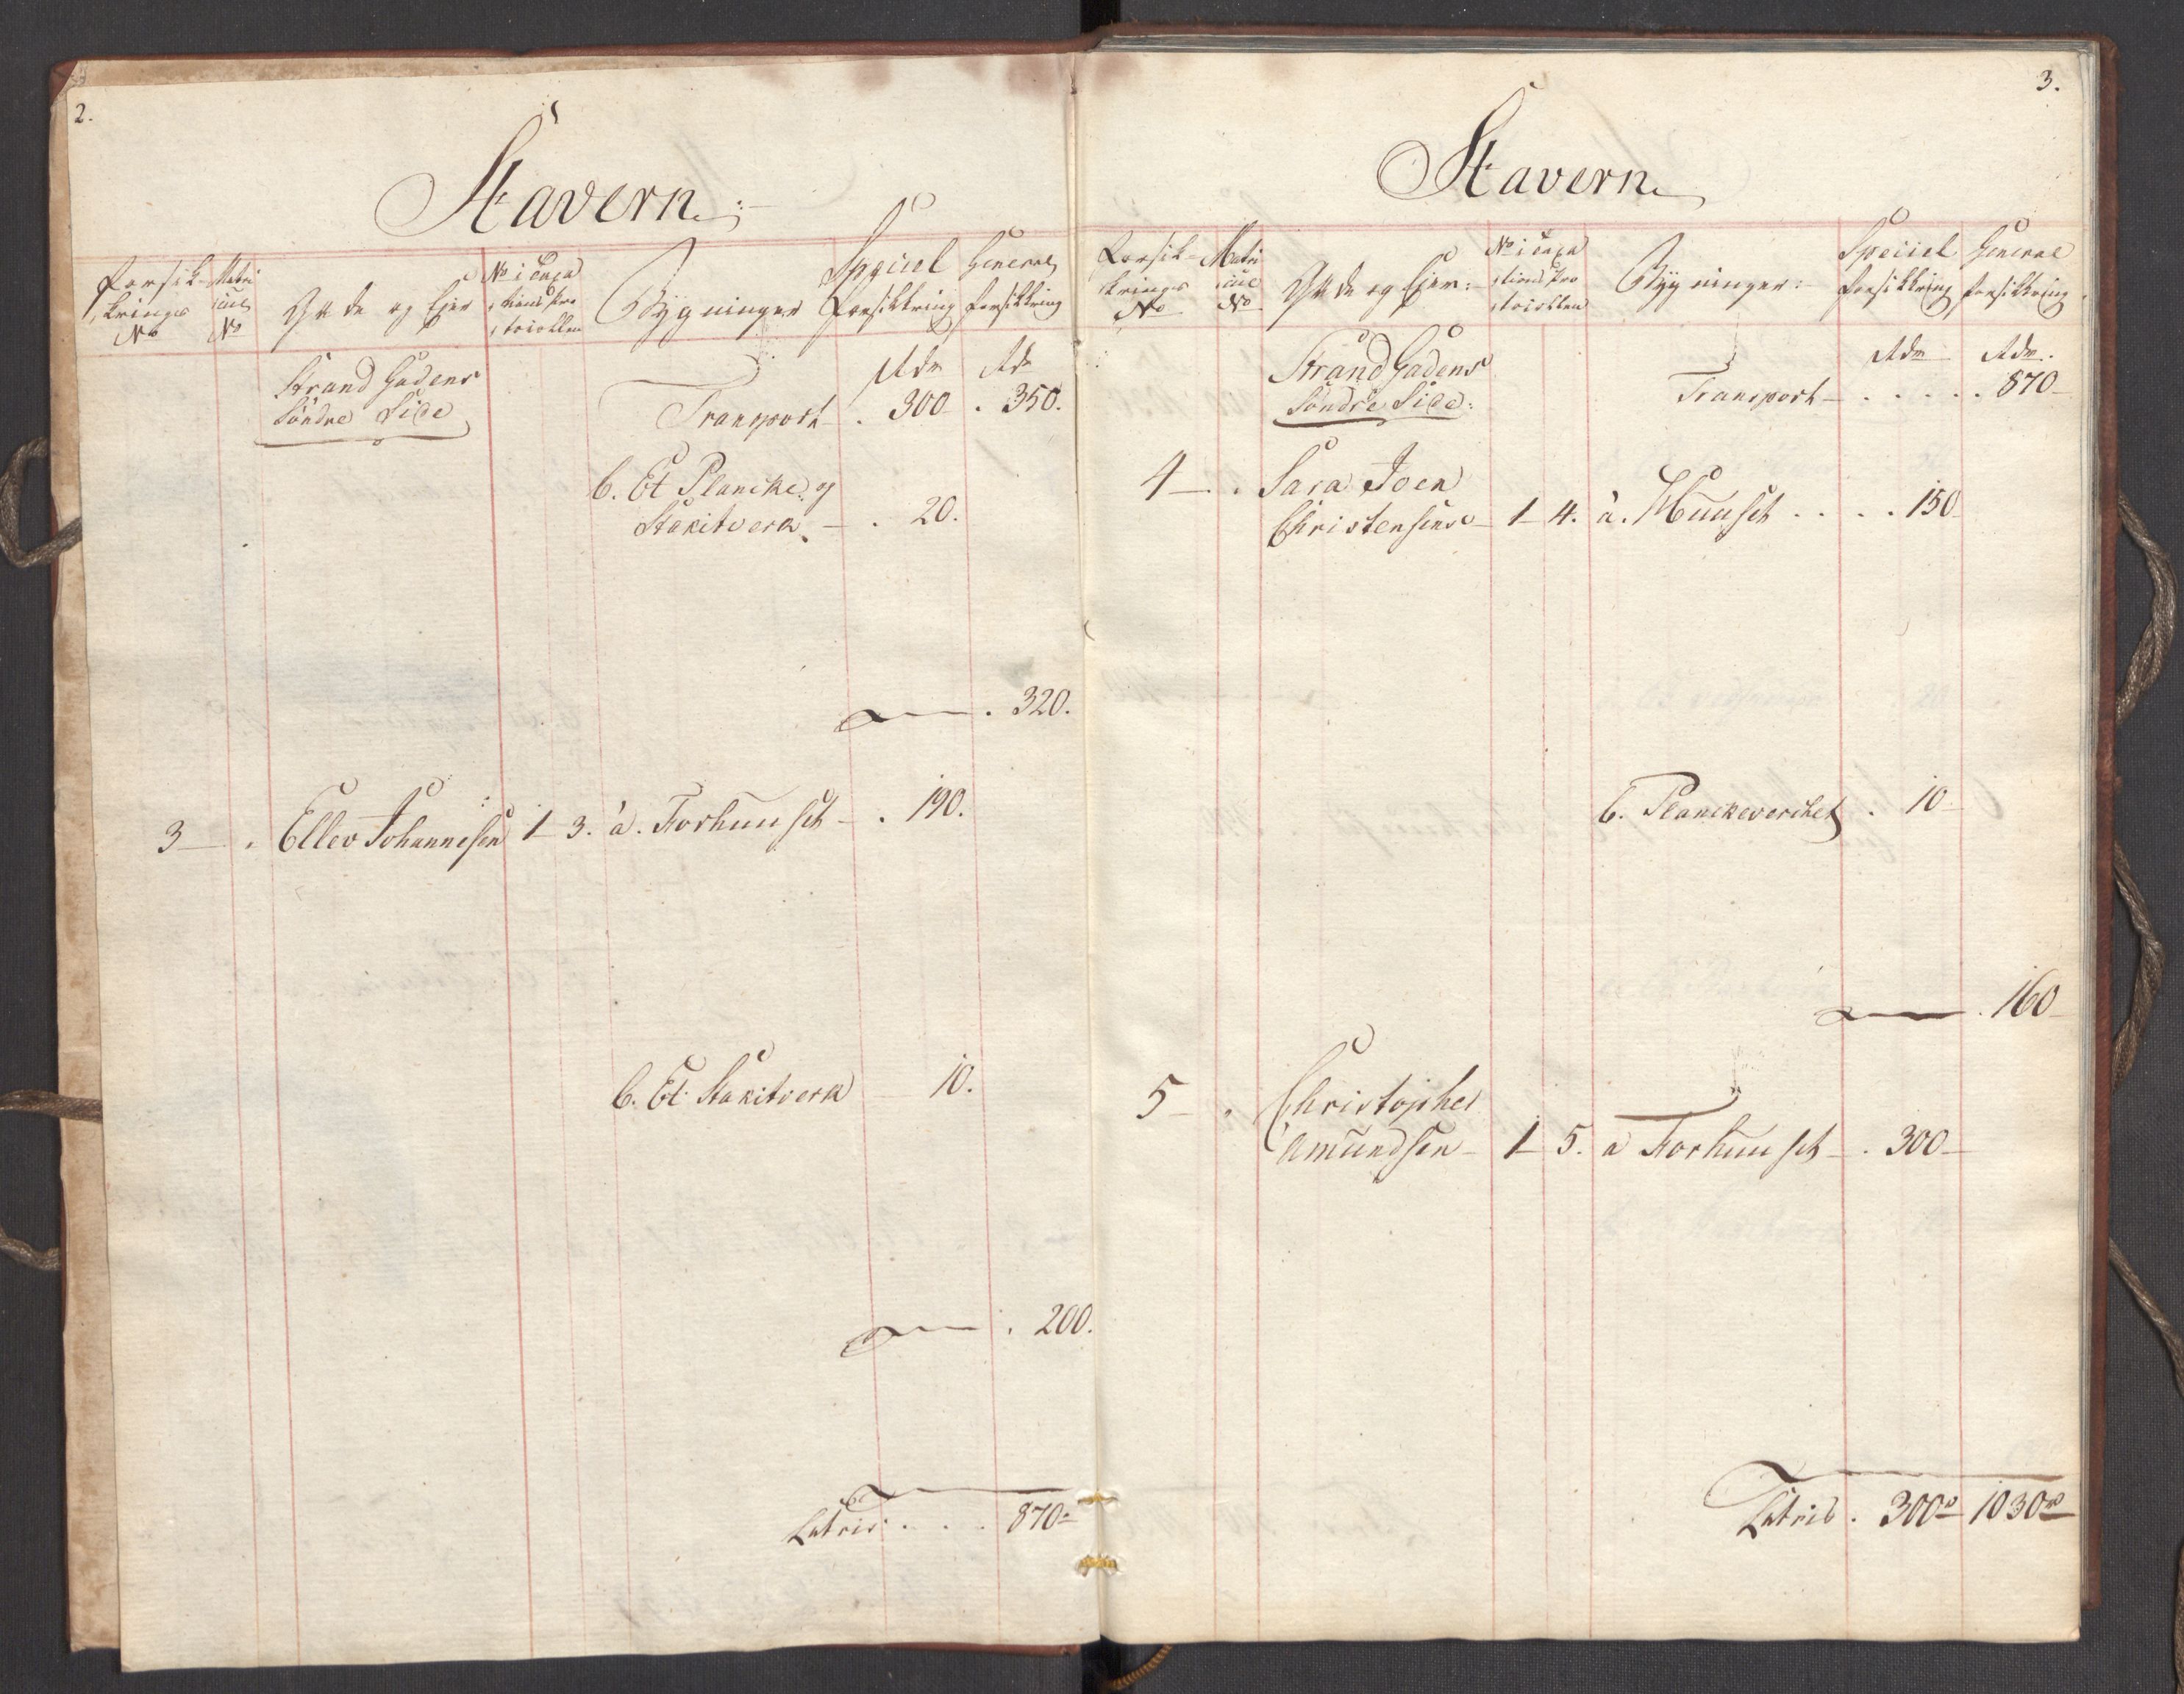 2.
Stavern
Forsik-
krings
No
Matri
cul
No
Gade og Eier
No i Taxa
tions Pro
tocollen
Bygninger
Speciel
Forsikkring
General
Forsikkring
Strand Gadens
Söndre Side
Rdr Rdr
Transport . 300 . 350.
b. Et Plancke og
Stakitverk . 20.
. 320.
3 " Ellev Johannesen 1 3. a. Forhuuset . 190.
b. Et Stakitverk 10.
. 200.
Latris . . . 870
3.
Stavern
Forsik-
krings
No
Matri
cul
No
Gade og Eier:
No i Taxa
tions Pro
tocollen
Bygninger:
Speciel
Forsikkring
General
Forsikkring
Strand Gadens
Söndre Side:
Rdr Rdr.
Transport . . . . . 870
4 . Sara Joen
Christensens 1 4. a. Huuset . . . . 150
b. Planckeverket . 10
. 160
5 " Christopher
Amundsen 1 5. a Forhuuset . 300
Latris . 300 1030